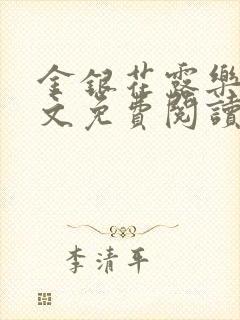 金銀花露樂
文免費閱讀
李清平